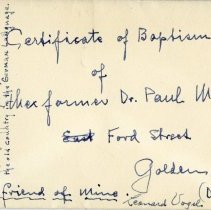 Certificate of Baptism
of
the former Dr. Paul M
East Ford Street
Golden
Friend of Mine.
Leonard Vogel
the old country. the German language.